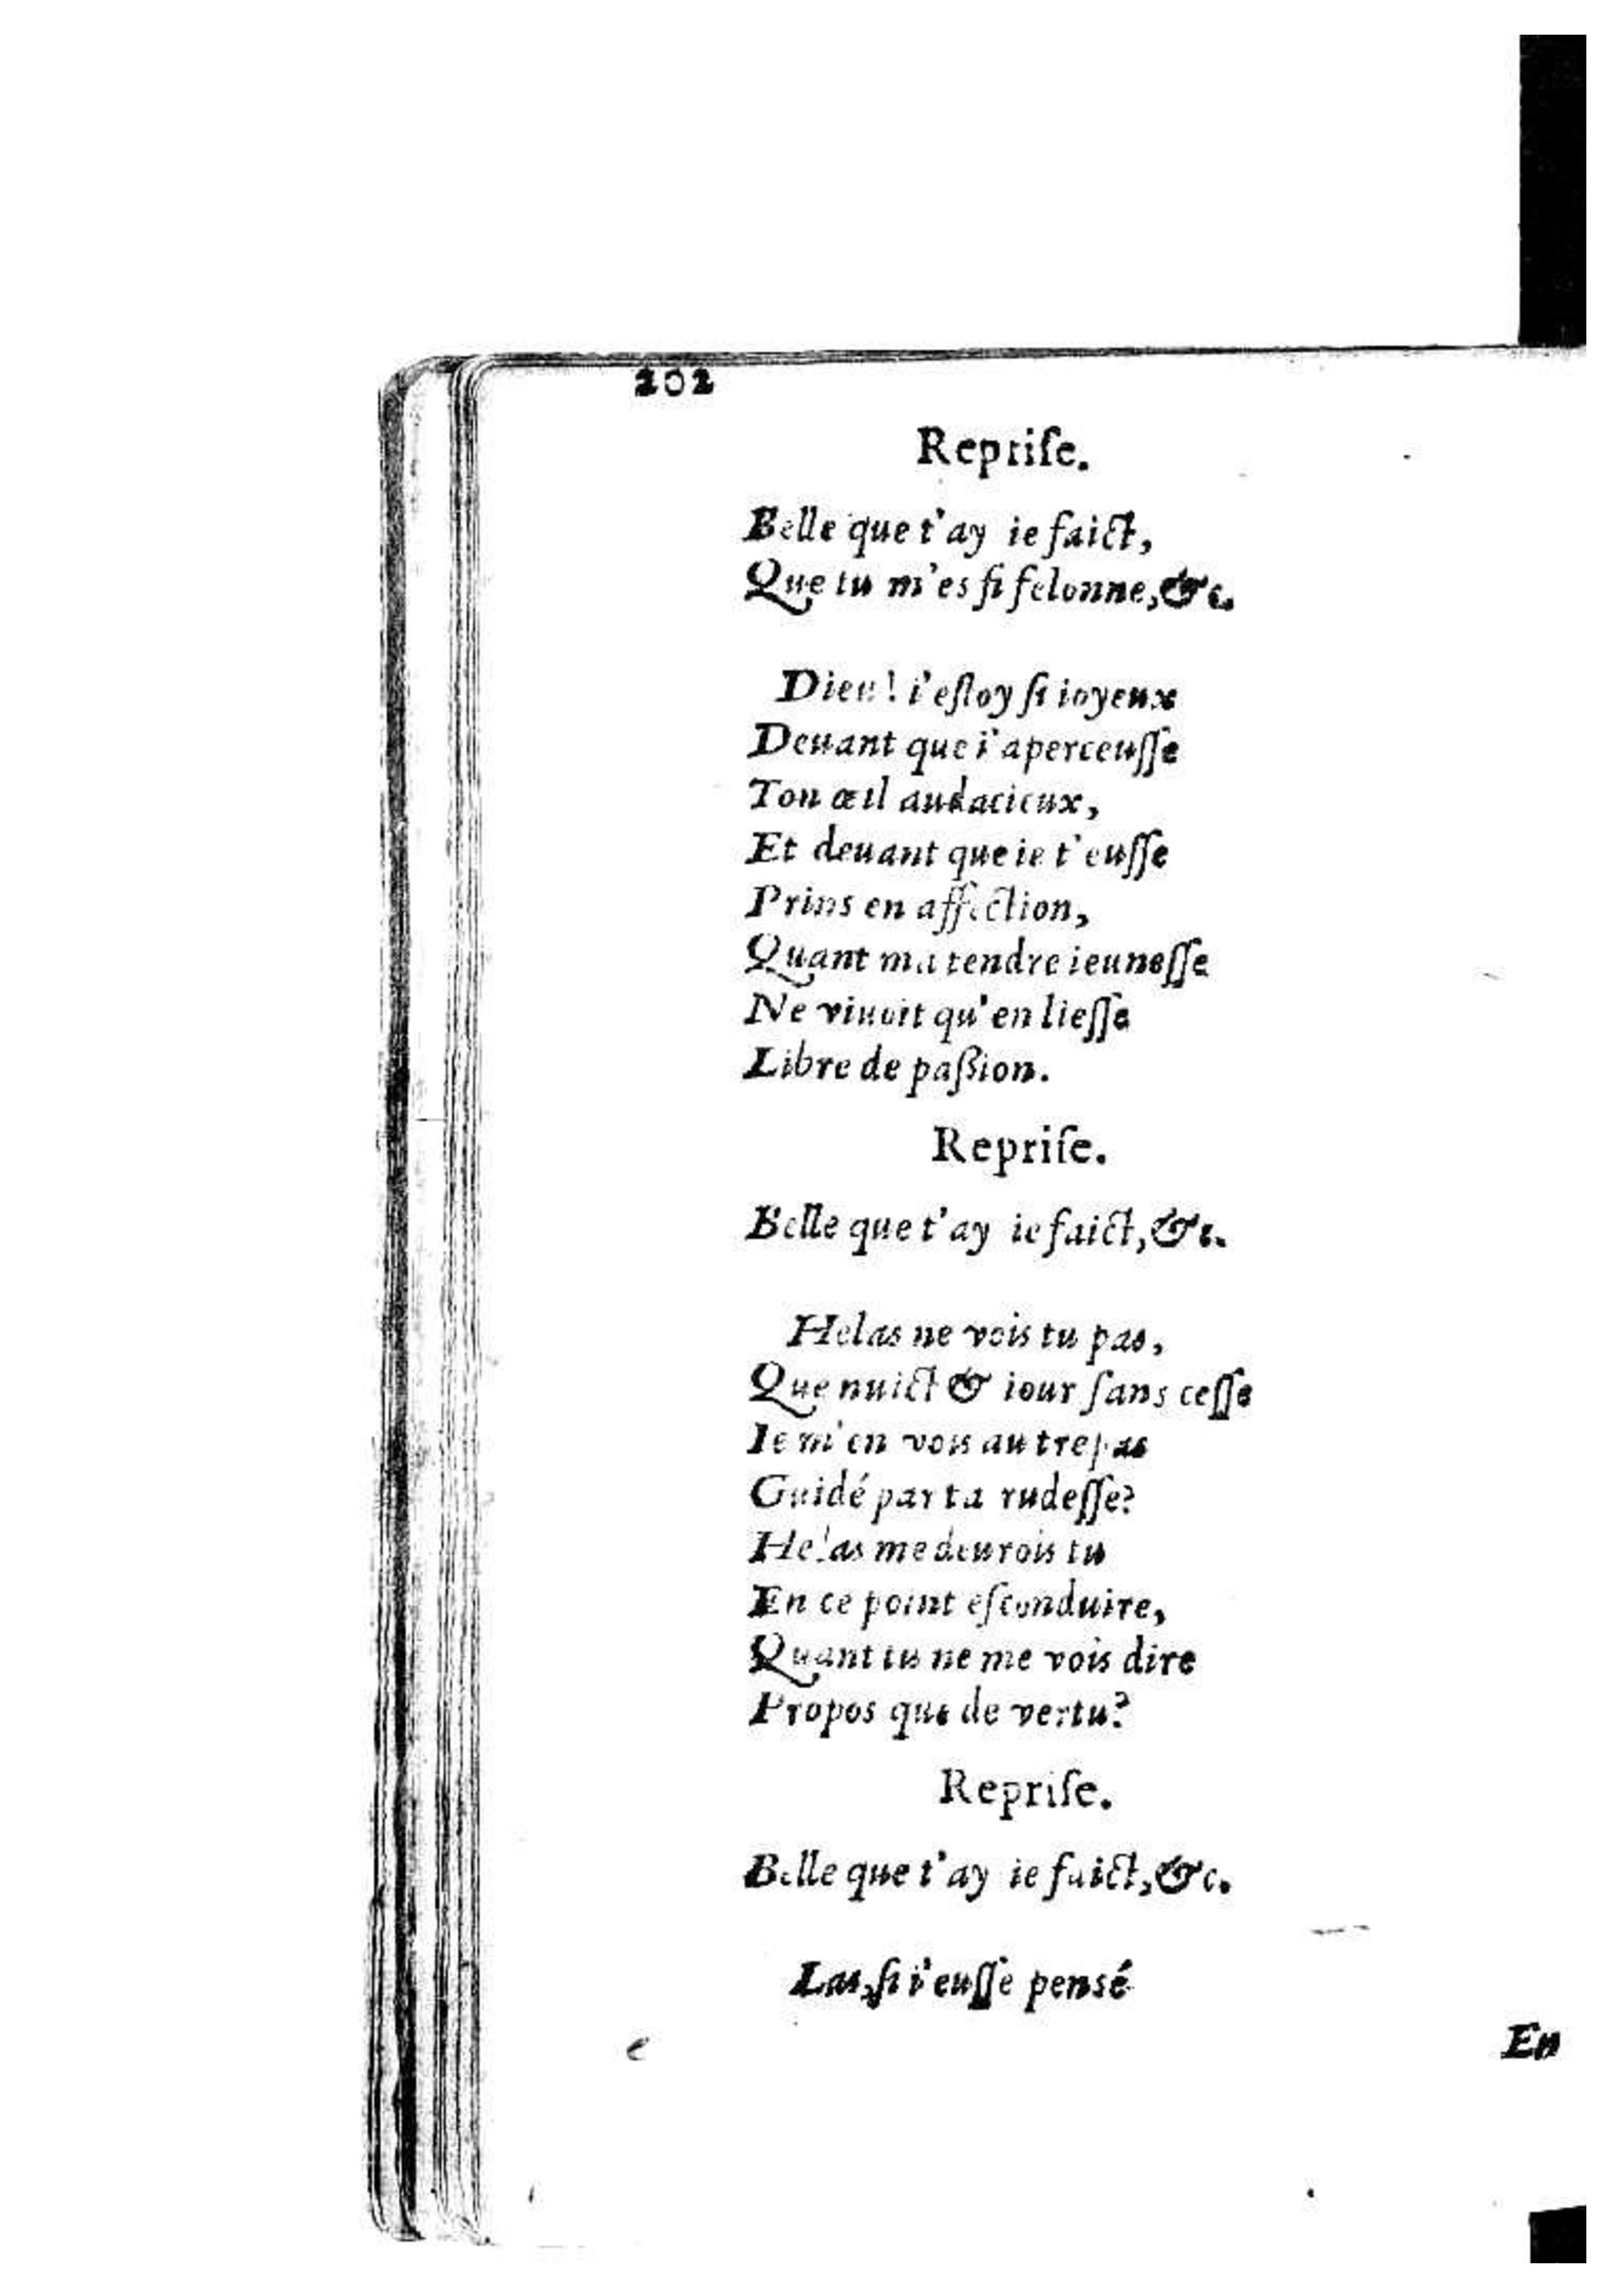 202
Repriſe.
Belle que t'ay ie faict,
Que tu m'es ſi felonne, &c.
Dieu! i'eſtoy ſi ioyeux
Deuant que i'aperceuſſe
Ton œil audacieux,
Et deuant que ie t'euſſe
Prins en affection,
Quant ma tendre ieuneſſe
Ne viuoit qu'en lieſſe
Libre de paſsion.
Repriſe.
Belle que t'ay ie faict, &c.
Helas ne vois tu pas,
Que nuict & iour ſans ceſſe
Ie m'en vois au trepas
Guidé par ta rudeſſe?
Helas me deurois tu
En ce point eſconduire,
Quant tu ne me vois dire
Propos que de vertu?
Repriſe.
Belle que t'ay ie faict, &c.
Las, ſi i'euſſe pensé
En